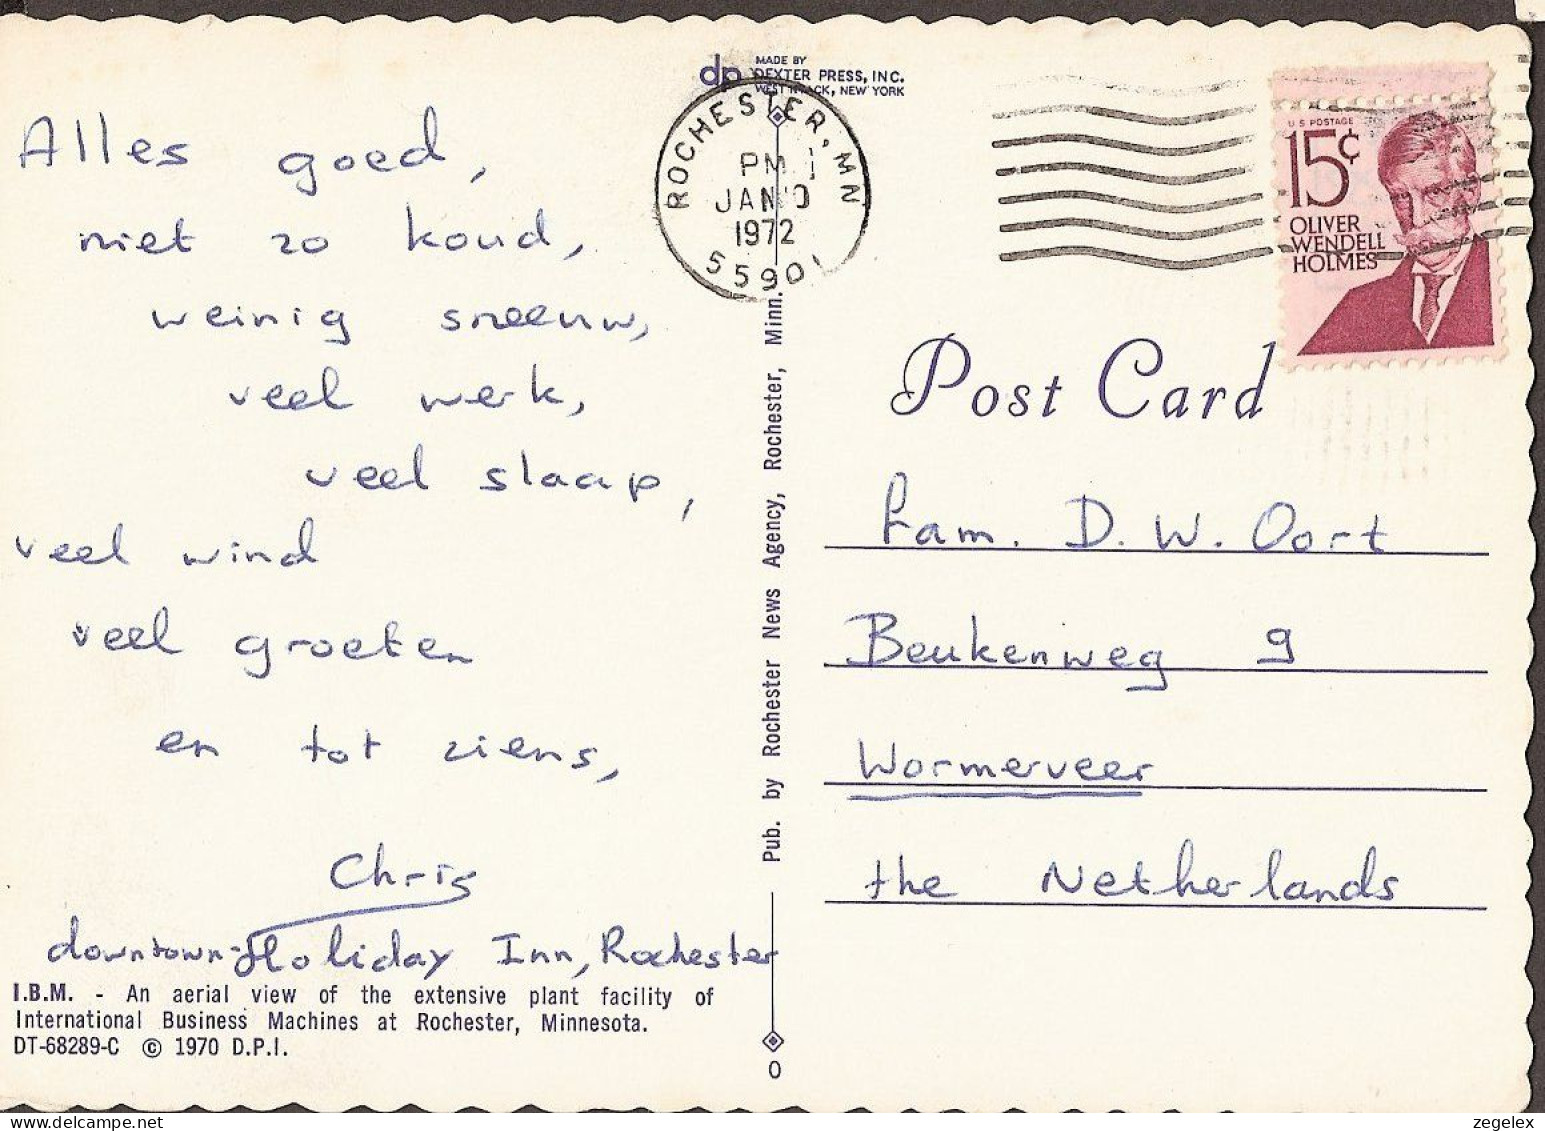 Alles goed,
niet zo koud,
weinig sneeuw,
veel werk,
veel slaap,
veel wind
veel groeten
en tot ziens,
Chris
downtown-Holiday Inn, Rochester
I.B.M. - An aerial view of the extensive plant facility of
International Business Machines at Rochester, Minnesota.
DT-68289-C © 1970 D.P.I.
dp
MADE BY
DEXTER PRESS, INC.
WEST NYACK, NEW YORK
ROCHESTER, MN
PM
JAN
1972
55901
Pub. by Rochester News Agency, Rochester, Minn.
0
U S POSTAGE
15¢
OLIVER
WENDELL
HOLMES
Post Card
Fam. D. W. Oort
Beukenweg 9
Wormerveer
the Netherlands
delcampe.net
zegelex